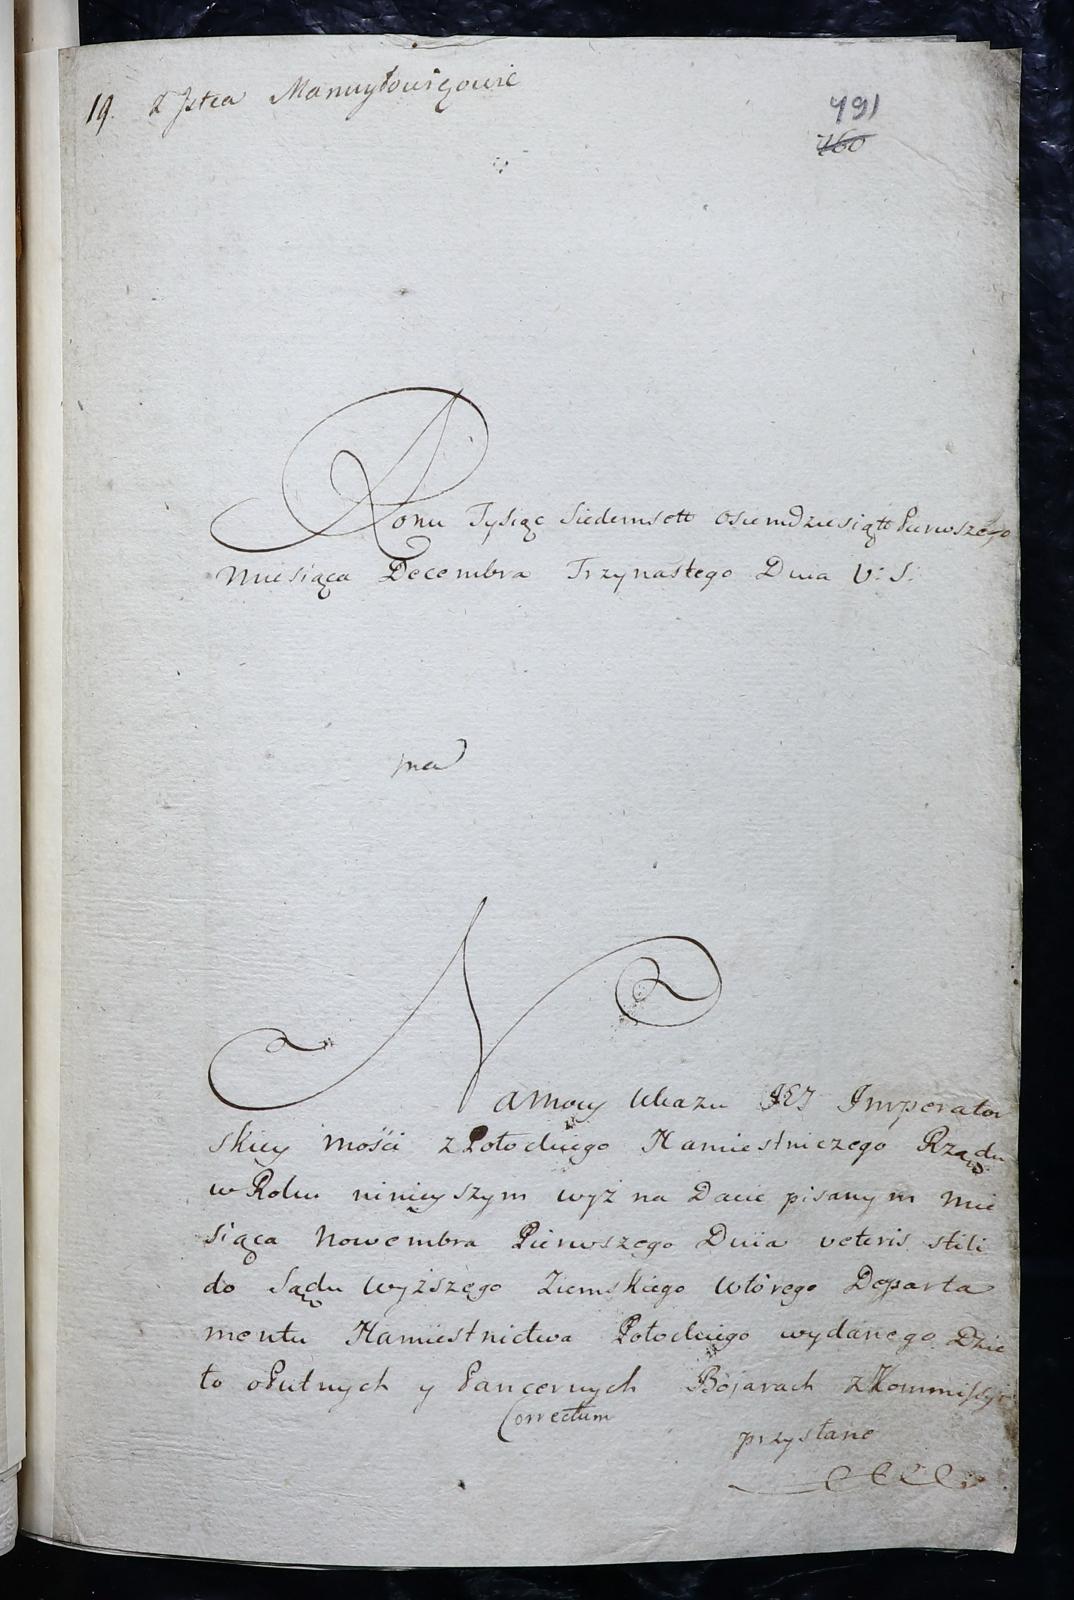 19. Manuyłowiczowie
491
460
Roku Tysiąc Siedemsett osiemdziesiątt Pierwszego
Miesiąca Decembra Trzynastego Dnia V: S:
Na mocy Ukazu JEJ Imperator
skiey Mości z Połockiego Namiestniczego Rządu
w Roku ninieyszym wyż na Dacie pisanym Mie
siąca Nowembra Pierwszego Dnia veteris stili
do Sądu Wyższego Ziemskiego Wtórego Departa
mentu Namiestnictwa Połockiego wydanego Dzie
ło o Putnych y Pancernych Bojarach z Kommissyi
Correctum
przysłane